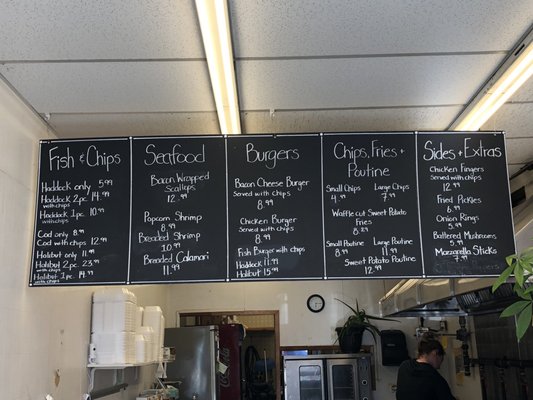 Fish & Chips
Haddock only 5.99
Haddock 2pc 14.99
with chips
Haddock 1pc 10.99
with chips
Cod only 8.99
Cod with chips 12.99
Halibut only 11.99
Halibut 2pc. 23.99
with chips
Halibut 1pc. 14.99
with chips
Seafood
Bacon Wrapped
Scallops
12.99
Popcorn Shrimp
8.99
Breaded Shrimp
10.99
Breaded Calamari
11.99
Burgers
Bacon Cheese Burger
Served with chips
8.99
Chicken Burger
Served with chips
8.99
Fish Burger with chips
Haddock 11.99
Halibut 15.99
Chips, Fries +
Poutine
Small Chips Large Chips
4.99 7.99
Waffle cut Sweet Potato
Fries
8.99
Small Poutine Large Poutine
8.99 11.99
Sweet Potato Poutine
12.99
Sides + Extras
Chicken Fingers
Served with chips
12.99
Fried Pickles
6.99
Onion Rings
5.99
Battered Mushrooms
5.99
Mozzarella Sticks
7.99